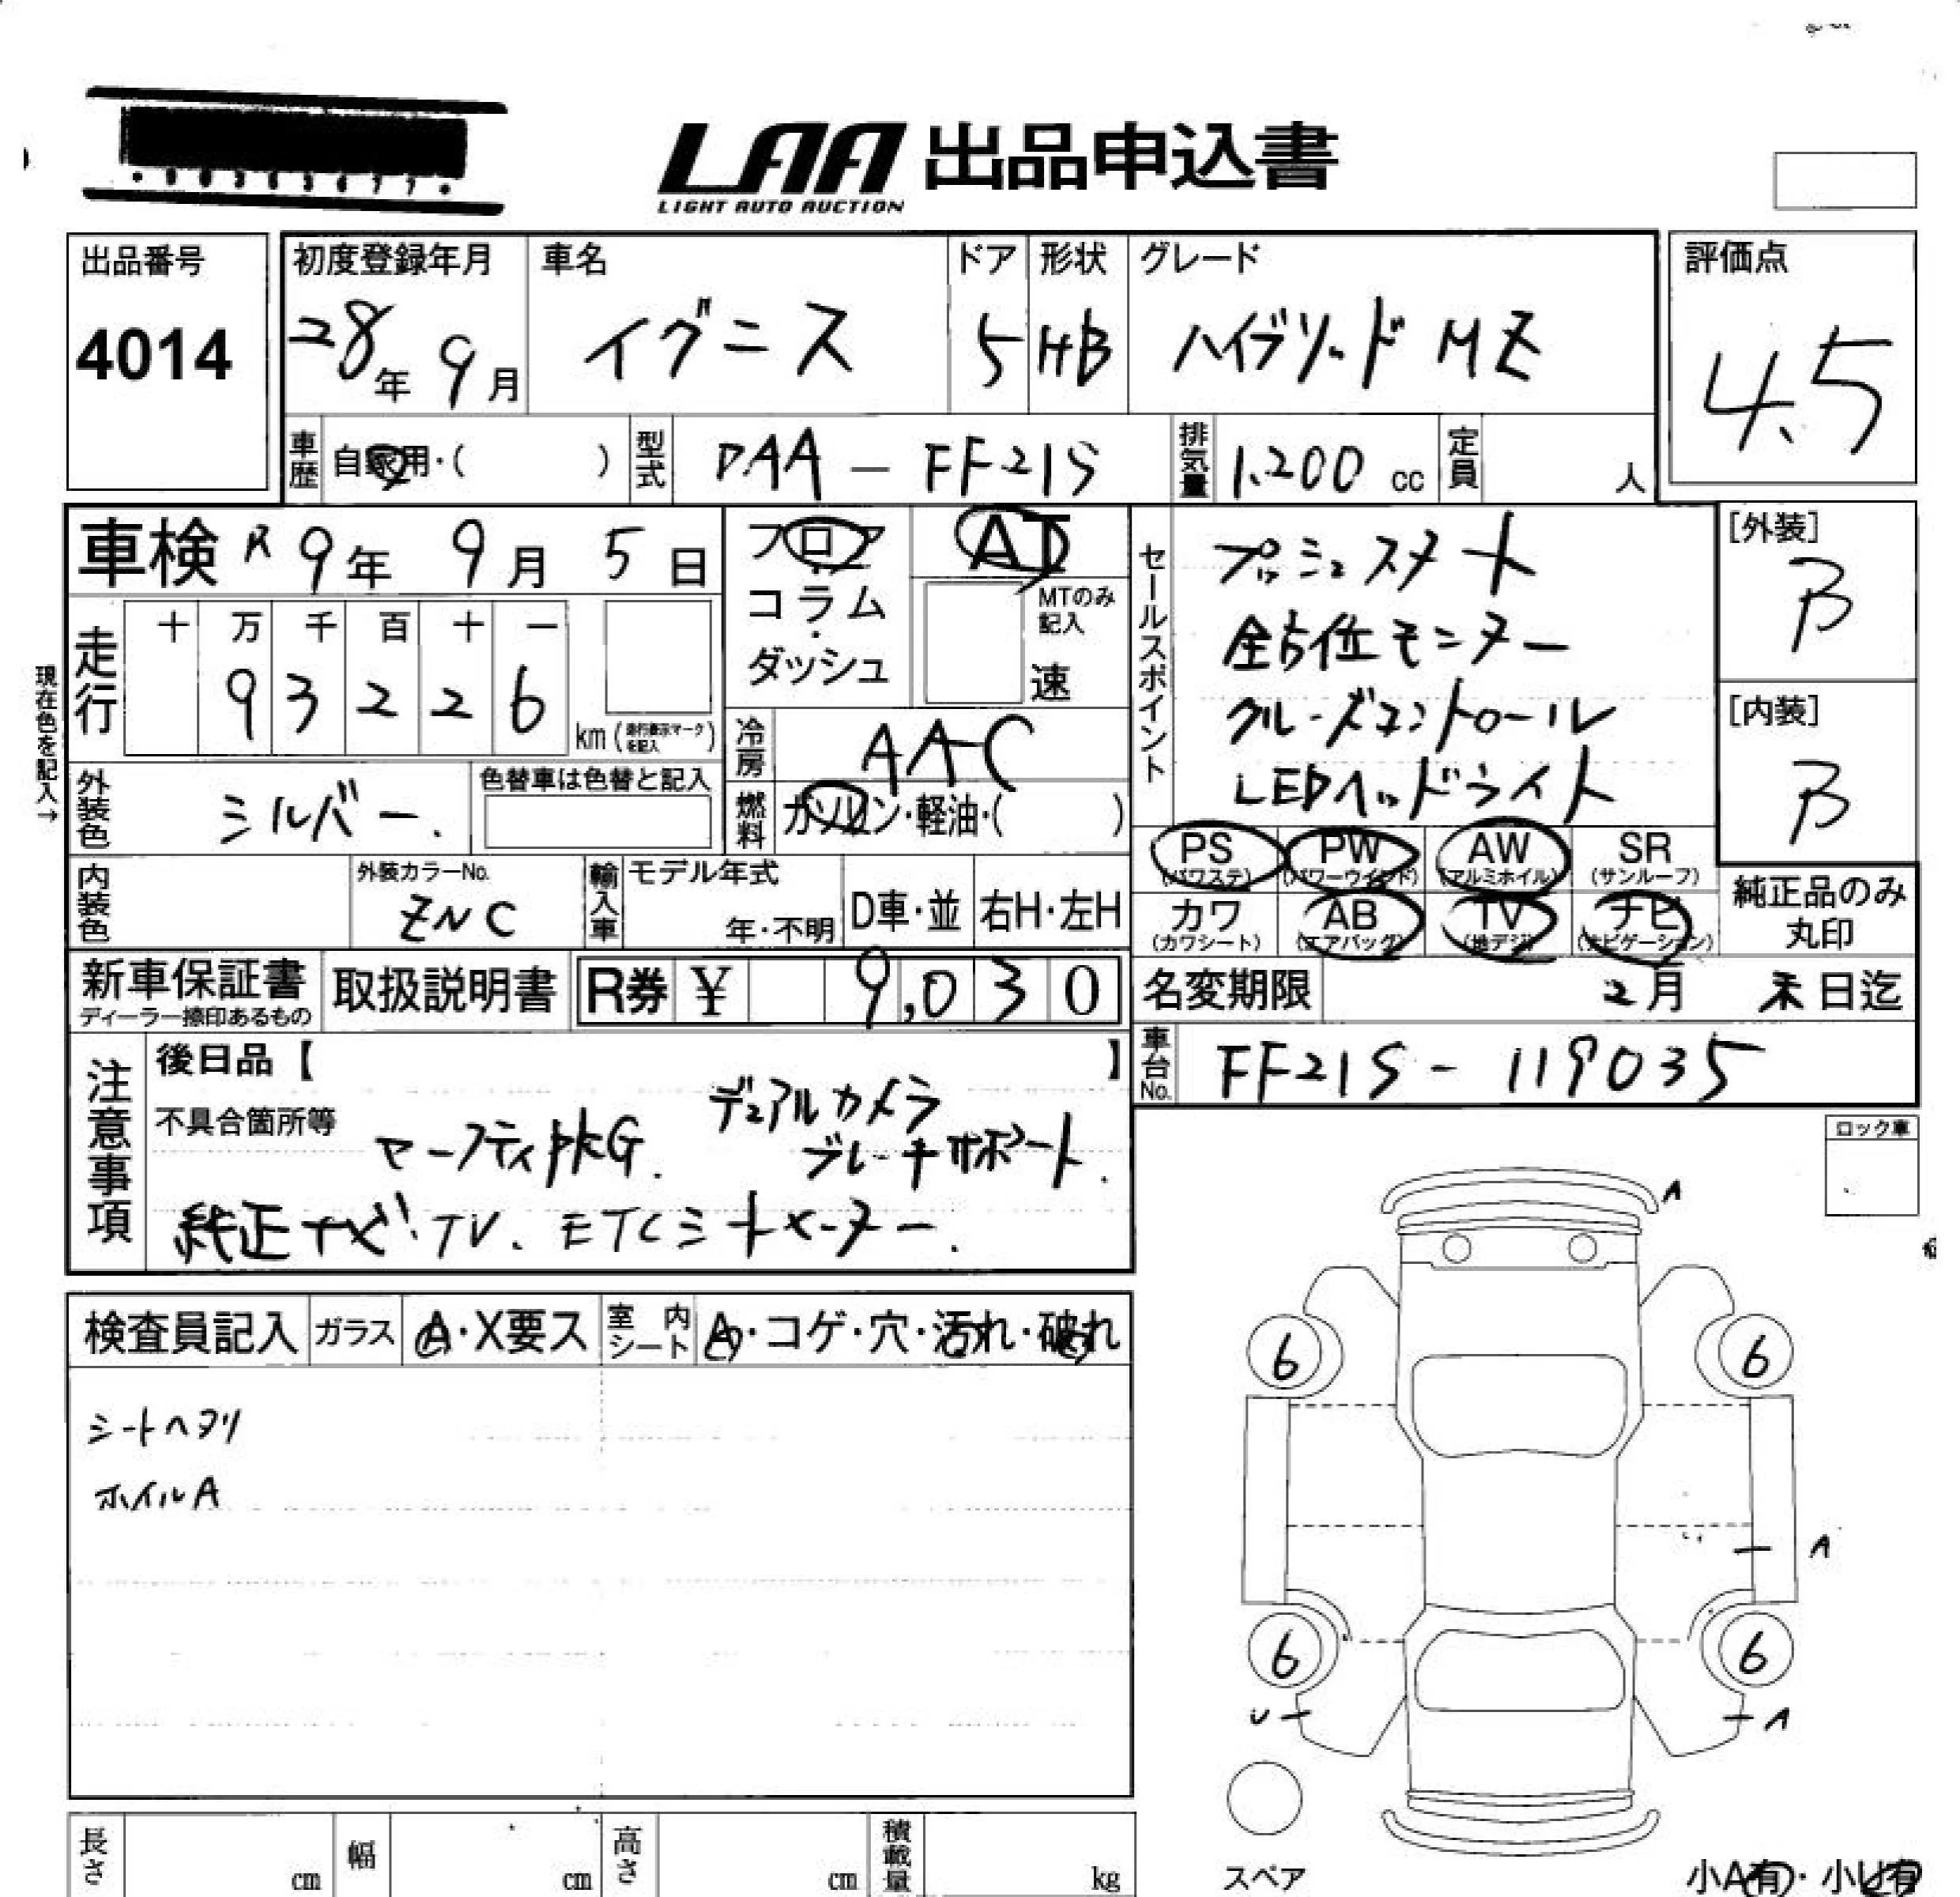 LAA 出品申込書
LIGHT AUTO AUCTION
出品番号
4014
初度登録年月
28年 9月
車名
イグニス
ドア
5
形状
HB
グレード
ハイブリッド MZ
評価点
4.5
車歴 自家用・( )
型式 DAA-FF21S
排気量 1.200 cc
定員 人
車検 R9年 9月 5日
フロア・コラム・ダッシュ
AT
MTのみ記入
速
走行
十 万 千 百 十 一
9 3 2 2 6
km (走行表示マークを記入)
現在色を記入→
冷房 AAC
燃料 ガソリン・軽油・( )
外装色 シルバー.
色替車は色替と記入
内装色
外装カラーNo.
ZNC
輸入車
モデル年式
年・不明
D車・並
右H・左H
セールスポイント
プッシュスタート
全方位モニター
クルーズコントロール
LEDヘッドライト
[外装]
B
[内装]
B
PS (パワステ)
PW (パワーウインド)
AW (アルミホイル)
SR (サンルーフ)
カワ (カワシート)
AB (エアバッグ)
TV (地デジ)
ナビ (ナビゲーション)
純正品のみ
丸印
新車保証書
ディーラー捺印あるもの
取扱説明書
R券 ¥ 9,030
名変期限 2月 末日迄
車台No. FF21S-119035
注意事項
後日品【 】
不具合箇所等
セーフティPKG.
デュアルカメラ
ブレーキサポート.
純正ナビ・TV. ETCシートヒーター.
ロック車
検査員記入
ガラス A・X要ス
室内シート A・コゲ・穴・汚れ・破れ
シートヘタリ
ホイルA
A
6
6
A
6
6
U
A
スペア
小A有・小U有
長さ cm
幅 cm
高さ cm
積載量 kg